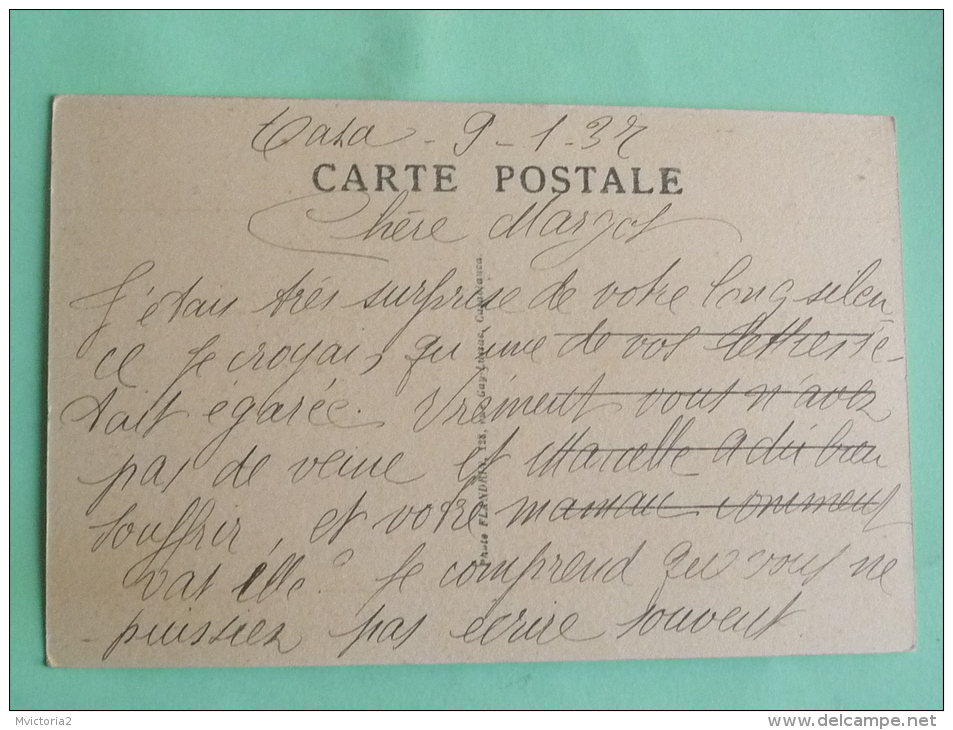 Casa - 9 - 1 - 37
CARTE POSTALE
Chère Margot
J'étais très surprise de votre long silen-
ce Je croyais qu'une de vos lettres s'é-
tait égarée. Vréiment vous n'avez
pas de veine et Marcelle a dû bien
souffrir, et votre maman comment
vat elle? Je comprend que vous ne
puissiez pas écrire souvent
Photo FLANDRIN, 128, Casablanca
Mvictoria2
www.delcampe.net